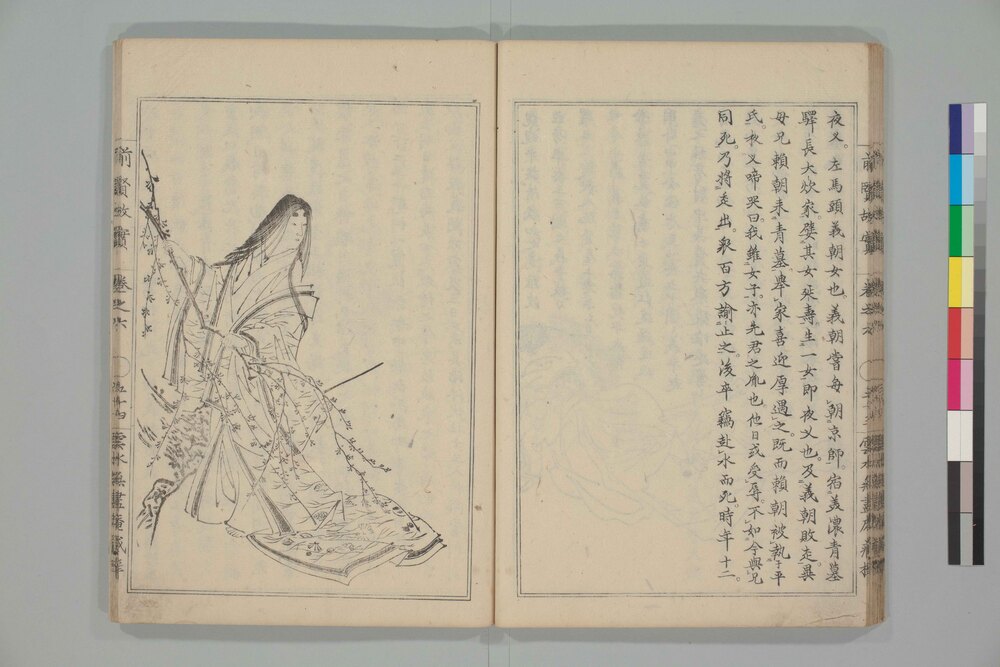 夜叉。左馬頭義朝女也。義朝嘗每朝京師。宿美濃青墓
驛長大炊家。嬖其女延壽。生一女。即夜叉也。及義朝敗走。與
母兄賴朝来青墓。舉家喜迎厚遇之。既而賴朝被執于平
氏。夜叉啼哭曰。我雖女子。亦先君之胤也。他日或受辱。不如今與兄
同死。乃將走出。衆百方諭止之。後卒竊赴水而死。時年十二。
前賢故實
卷之六
雲水無盡庵藏
前賢故實
卷之六